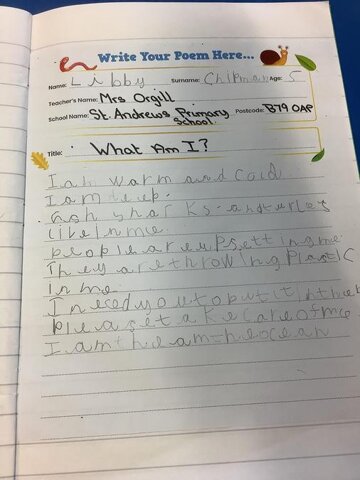 Write Your Poem Here...
Name: Libby Surname: Chipman Age: 5
Teacher's Name: Mrs Orgill
School Name: St. Andrews Primary School Postcode: B79 0AP
Title: What Am I?
I am warm and cold.
I am deep.
sharks. and turles
like in me
people are upsetting me
They are throwing Plastic
in me.
I need you to put it in the
Please take care of me
I am the am the ocean